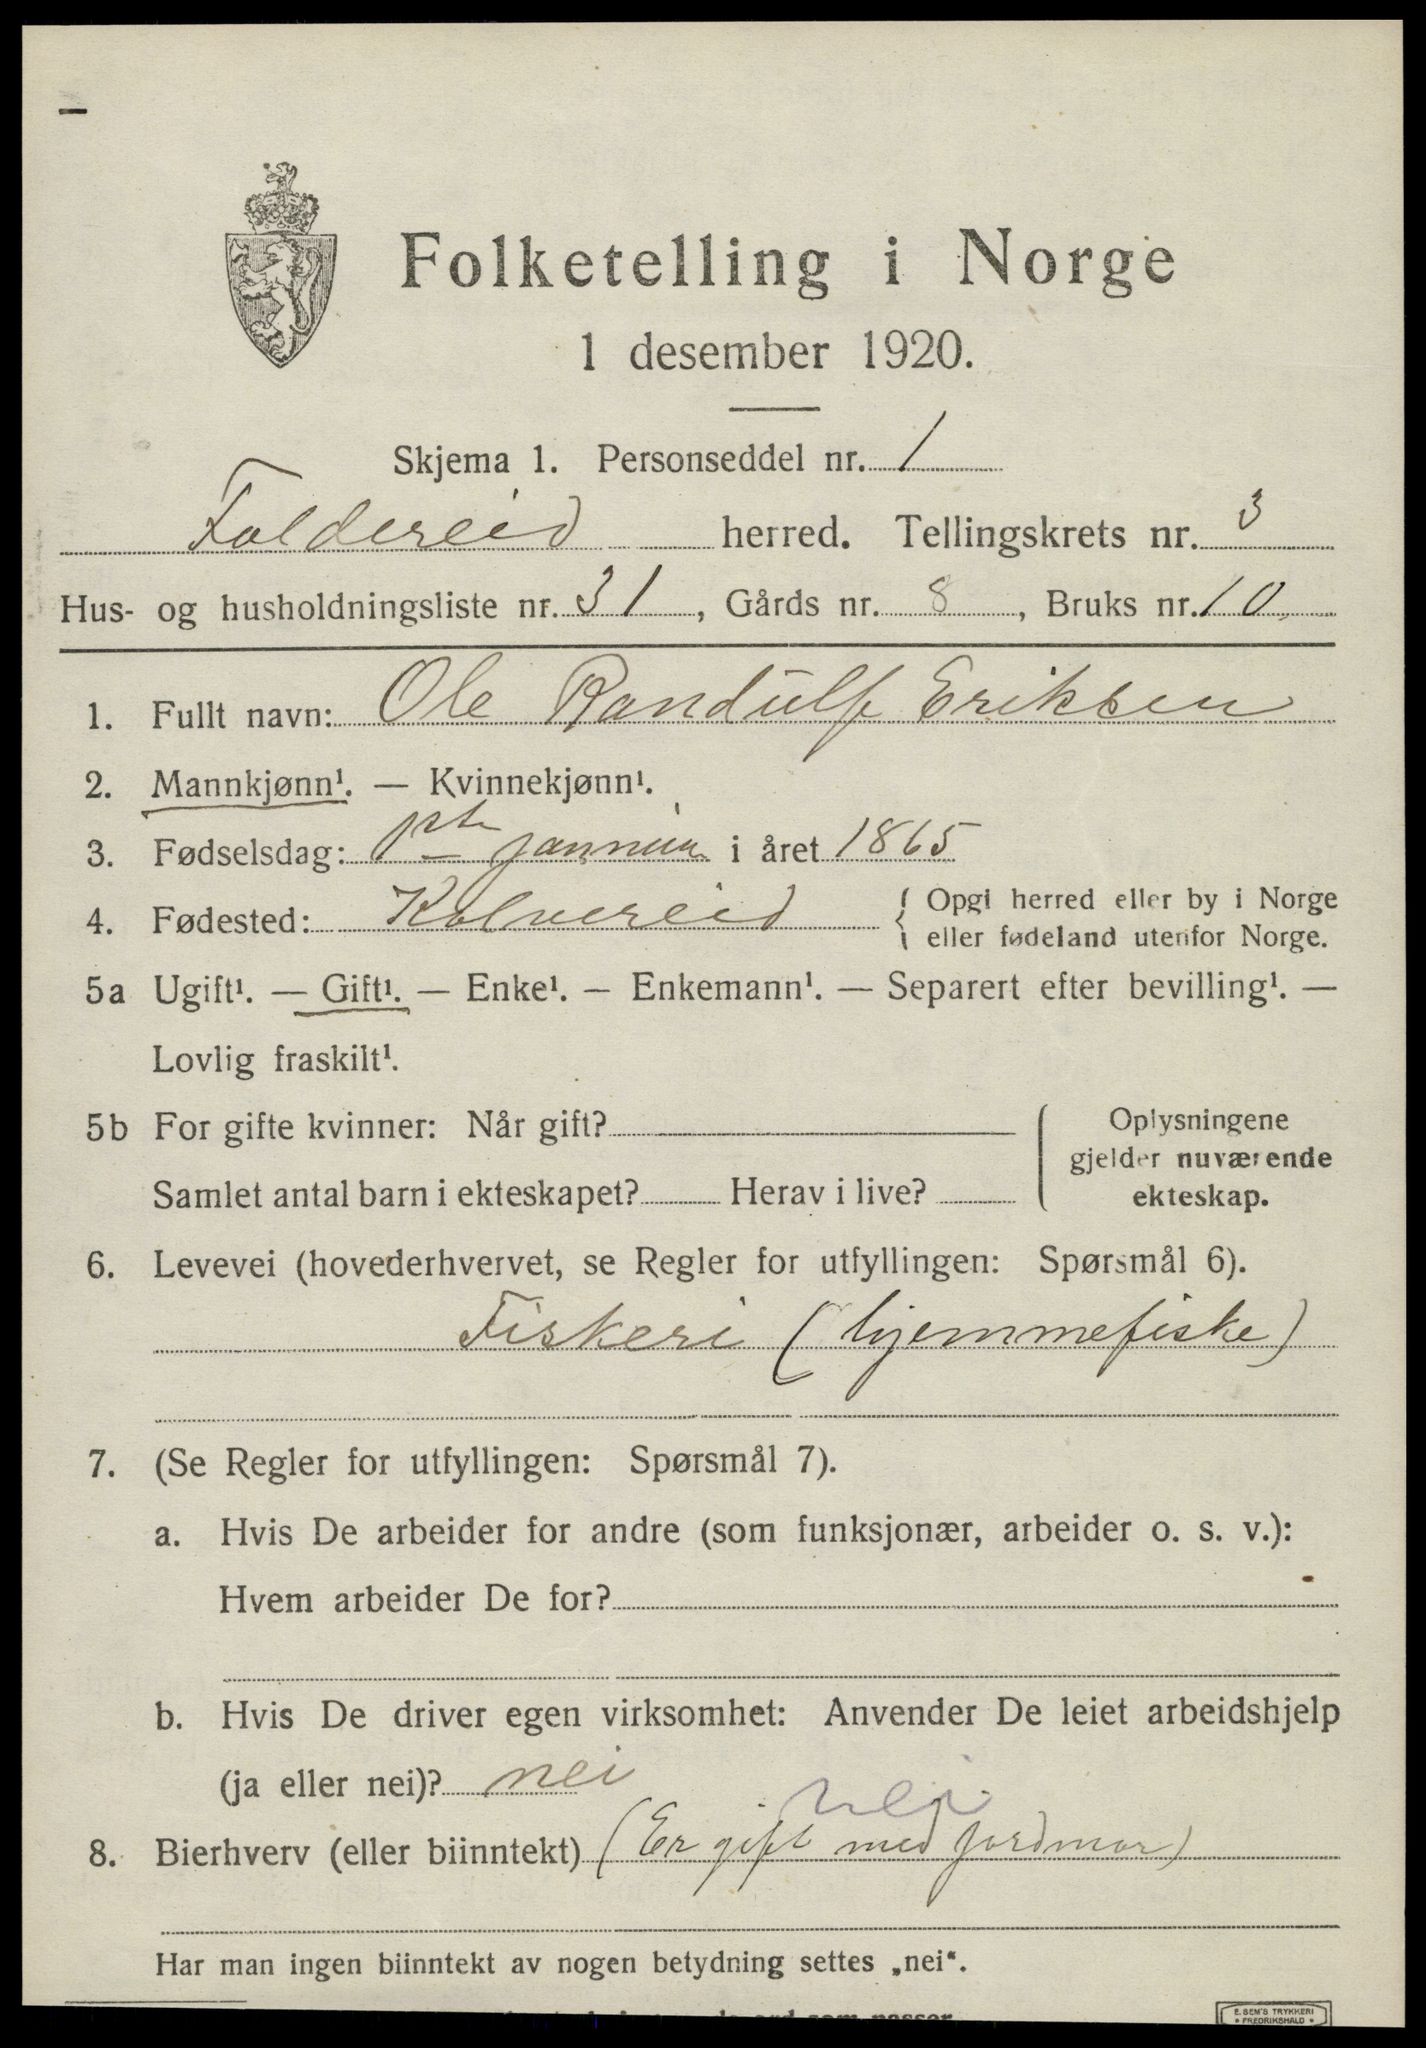 Folketelling i Norge
1 desember 1920.
Skjema 1. Personseddel nr. 1
Foldereid herred. Tellingskrets nr. 3
Hus- og husholdningsliste nr. 31, Gårds nr. 8, Bruks nr. 10
1. Fullt navn: Ole Randulf Eriksen
2. Mannkjønn¹. — Kvinnekjønn¹.
3. Fødselsdag: 1ste januar i året 1865
4. Fødested: Kolvereid { Opgi herred eller by i Norge
eller fødeland utenfor Norge.
5a Ugift¹. — Gift¹. — Enke¹. — Enkemann¹. — Separert efter bevilling¹. —
Lovlig fraskilt¹.
5b For gifte kvinner: Når gift?
Samlet antal barn i ekteskapet? Herav i live?
Oplysningene
gjelder nuværende
ekteskap.
6. Levevei (hovederhvervet, se Regler for utfyllingen: Spørsmål 6).
Fiskeri (hjemmefiske)
7. (Se Regler for utfyllingen: Spørsmål 7).
a. Hvis De arbeider for andre (som funksjonær, arbeider o. s. v.):
Hvem arbeider De for?
b. Hvis De driver egen virksomhet: Anvender De leiet arbeidshjelp
(ja eller nei)? nei
nei
8. Bierhverv (eller biinntekt) (Er gift med jordmor)
Har man ingen biinntekt av nogen betydning settes „nei“.
E. SEM'S TRYKKERI
• FREDRIKSHALD •